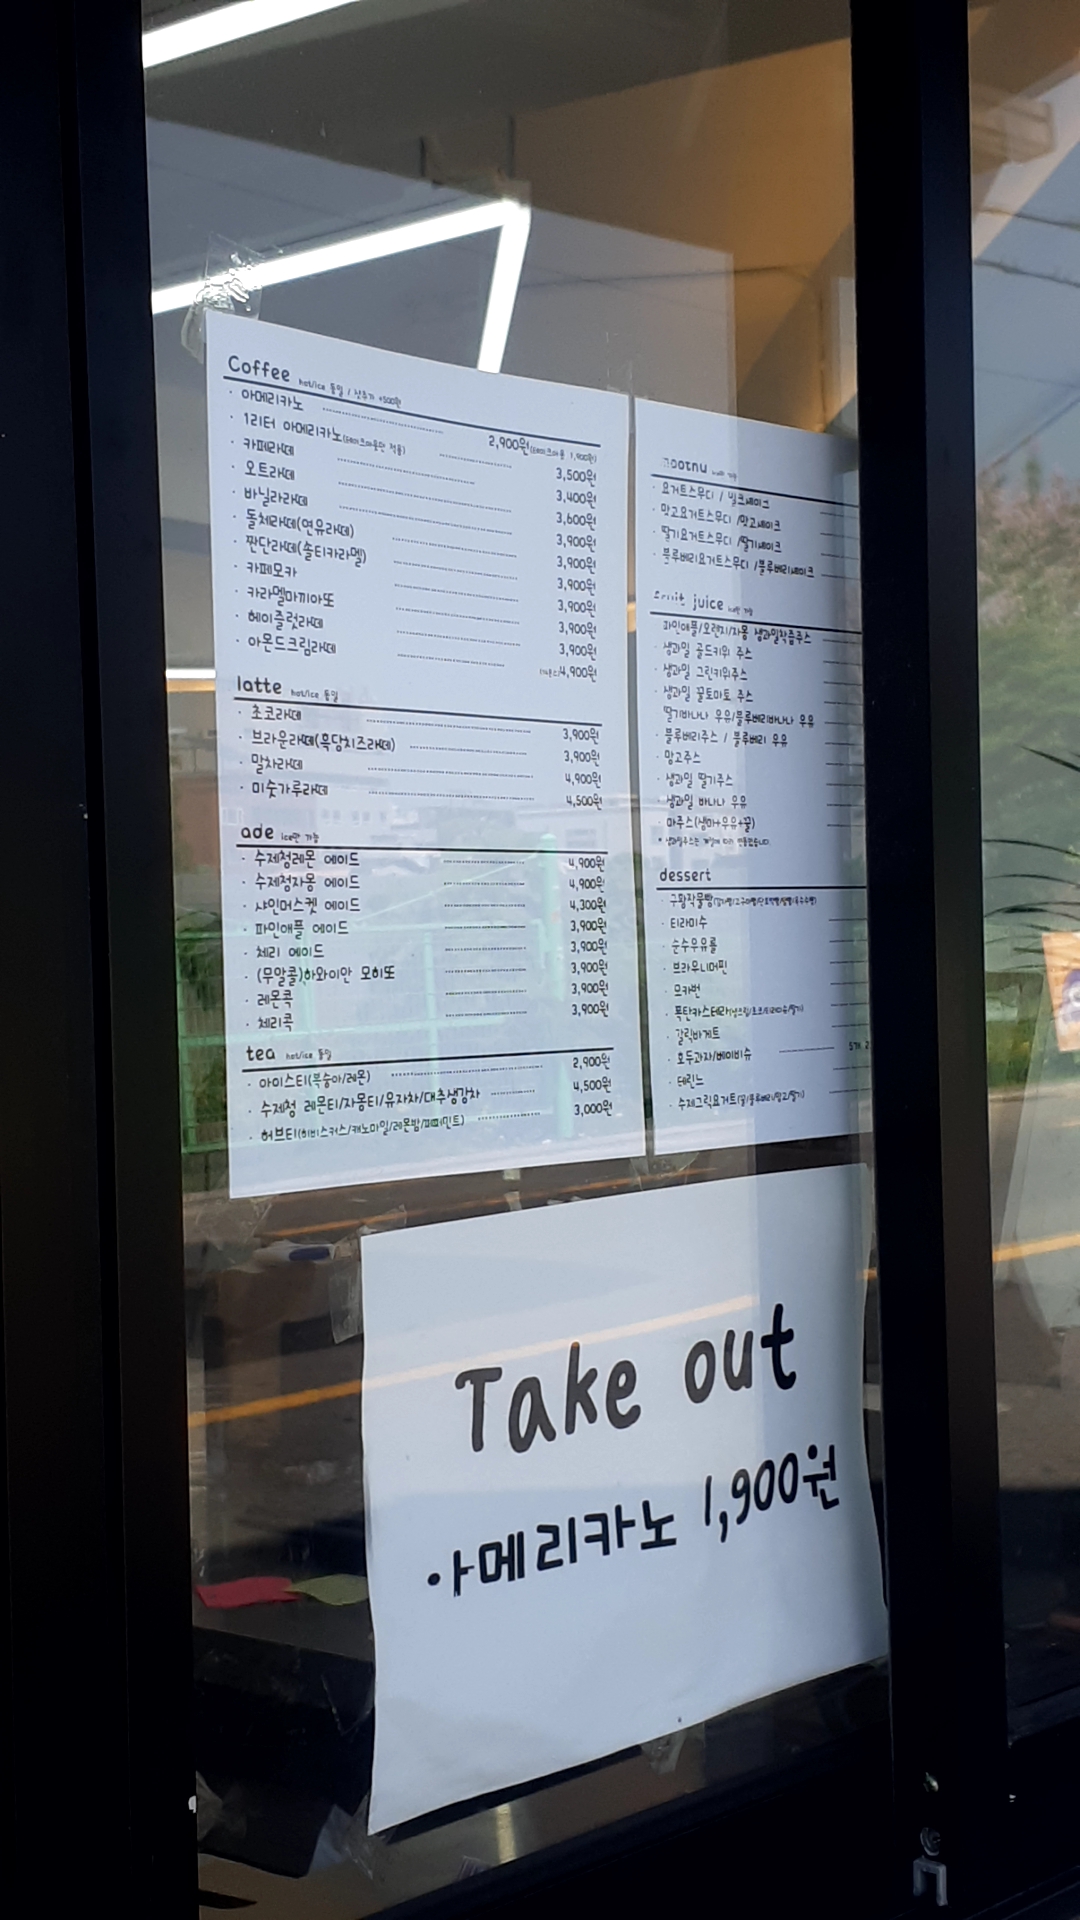 Coffee hot/ice 동일 / 샷추가 +500원
· 아메리카노 2,900원(테이크아웃 1,900원)
· 1리터 아메리카노(테이크아웃만 적용) 3,500원
· 카페라떼 3,400원
· 오트라떼 3,600원
· 바닐라라떼 3,900원
· 돌체라떼(연유라떼) 3,900원
· 짠단라떼(솔티카라멜) 3,900원
· 카페모카 3,900원
· 카라멜마끼아또 3,900원
· 헤이즐넛라떼 3,900원
· 아몬드크림라떼 4,900원
latte hot/ice 동일
· 초코라떼 3,900원
· 브라운라떼(흑당치즈라떼) 3,900원
· 말차라떼 4,900원
· 미숫가루라떼 4,500원
ade ice만 가능
· 수제청레몬 에이드 4,900원
· 수제청자몽 에이드 4,900원
· 샤인머스켓 에이드 4,300원
· 파인애플 에이드 3,900원
· 체리 에이드 3,900원
· (무알콜)하와이안 모히또 3,900원
· 레몬콕 3,900원
· 체리콕 3,900원
tea hot/ice 동일
· 아이스티(복숭아/레몬) 2,900원
· 수제청 레몬티/자몽티/유자차/대추생강차 4,500원
· 허브티(히비스커스/캐노마일/레몬밤/페퍼민트) 3,000원
· 요거트스무디 / 밀크쉐이크
· 망고요거트스무디 /망고쉐이크
· 딸기요거트스무디 /딸기쉐이크
· 블루베리요거트스무디 /블루베리쉐이크
fruit juice ice만 가능
파인애플/오렌지/자몽 생과일착즙주스
· 생과일 골드키위 주스
· 생과일 그린키위주스
· 생과일 꿀토마토 주스
딸기바나나 우유/블루베리바나나 우유
· 블루베리주스 / 블루베리 우유
· 망고주스
· 생과일 딸기주스
· 생과일 바나나 우유
· 마주스(생마+우유+꿀)
dessert
· 구황작물빵
· 티라미수
· 순수우유롤
· 브라우니머핀
· 모카번
· 폭탄카스테라
· 갈릭바게트
· 호두과자/베이비슈
· 테린느
· 수제그릭요거트(꿀/블루베리/망고/딸기)
Take out
·아메리카노 1,900원